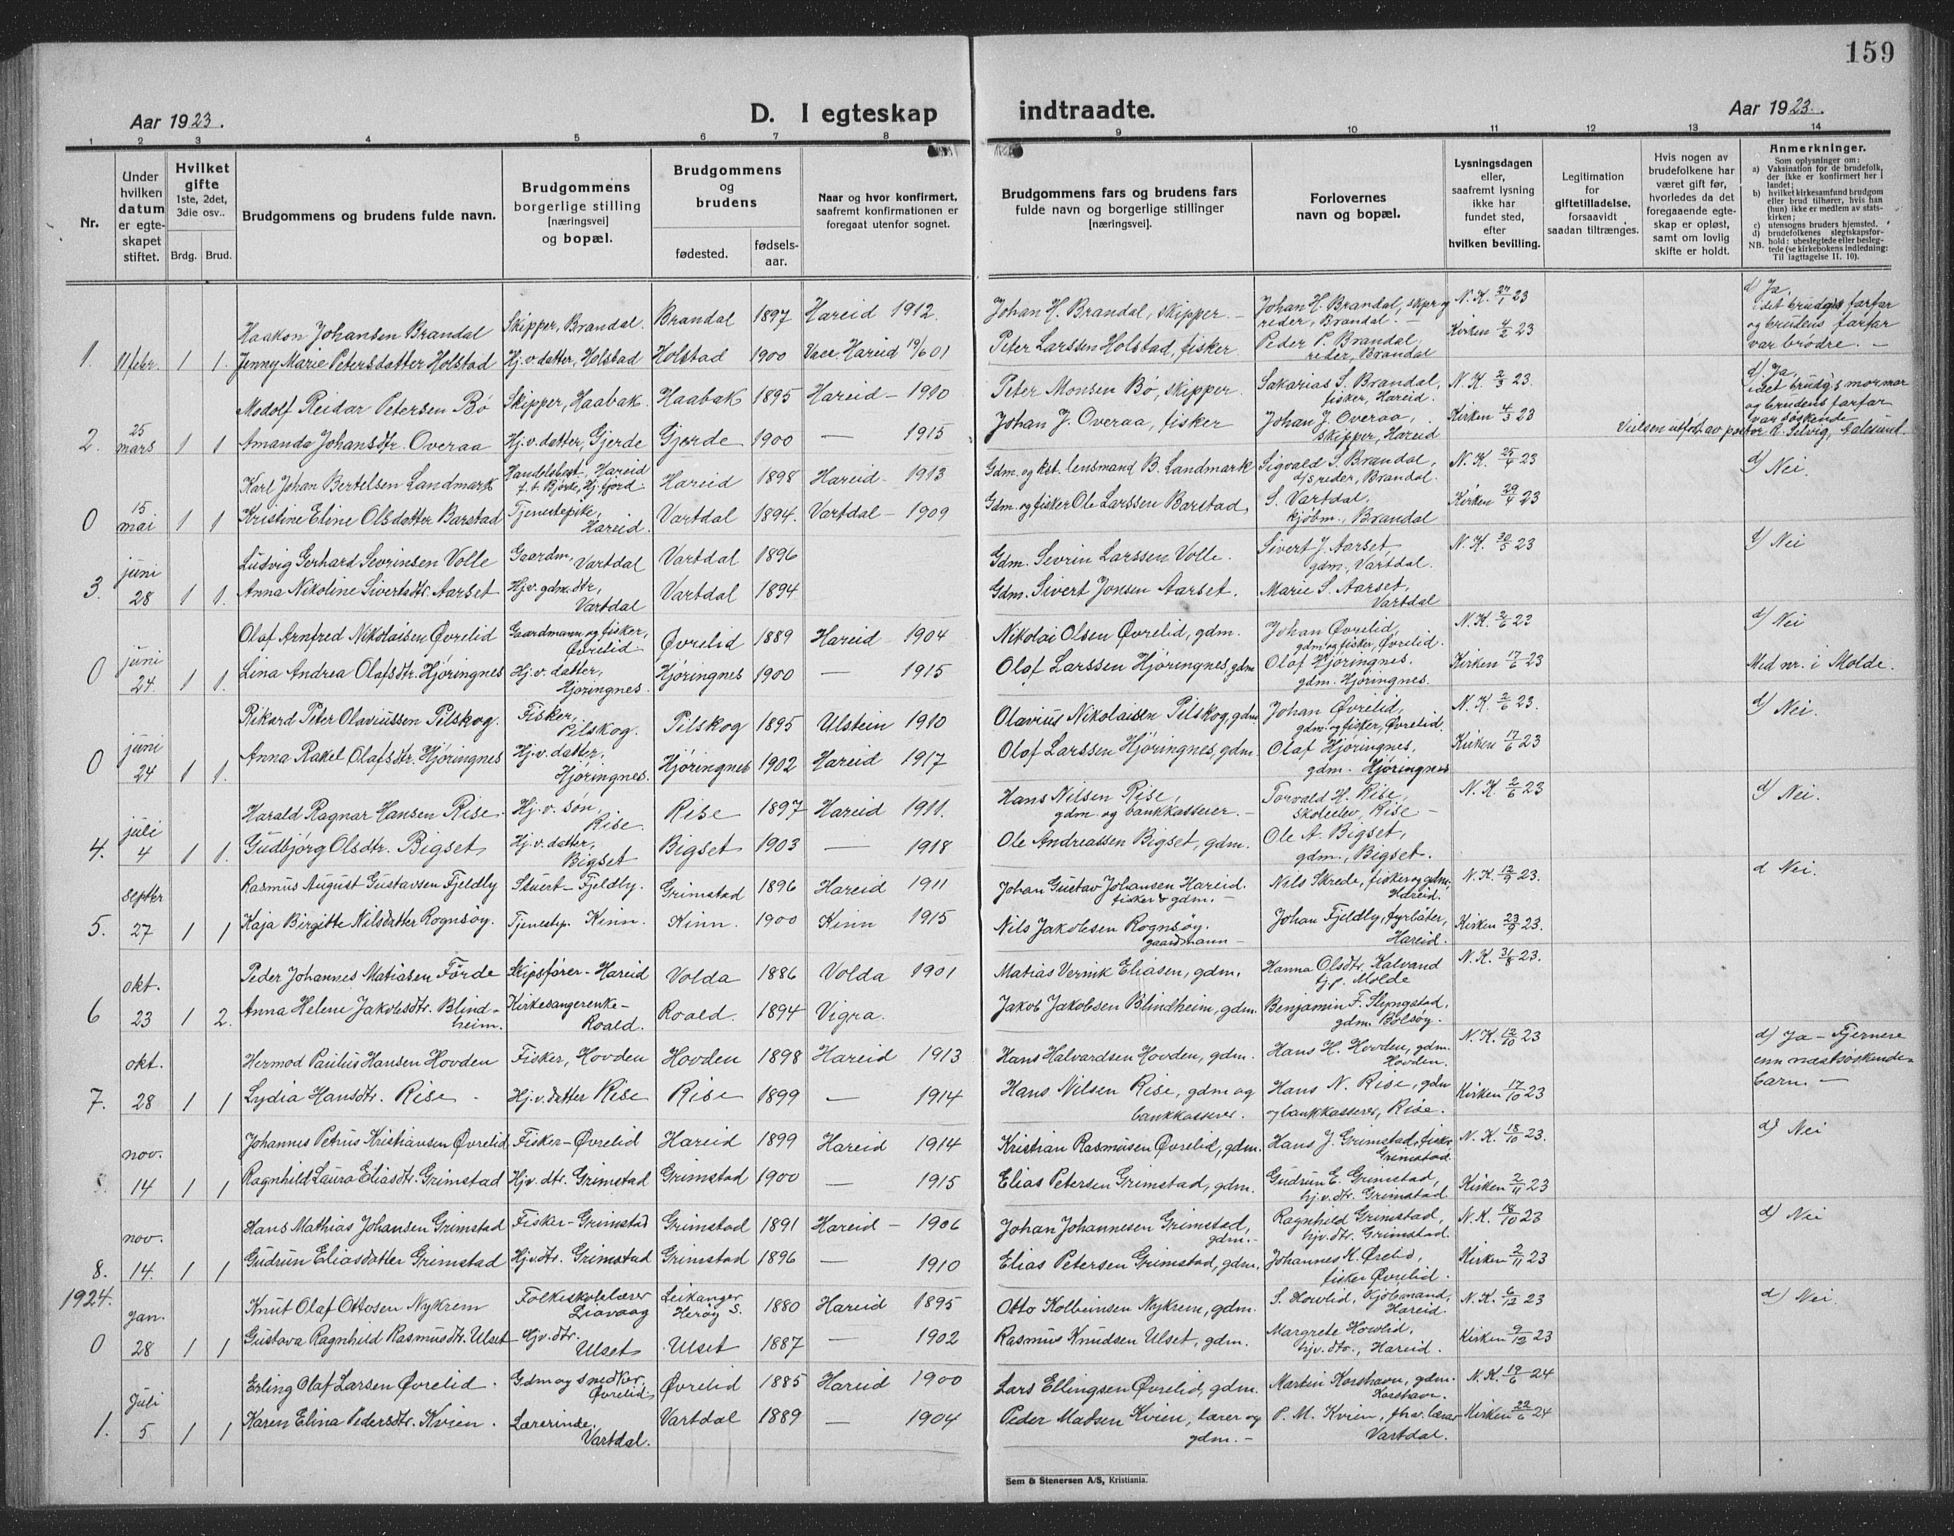 159
Aar 1923.
D. I egteskap indtraadte.
Aar 1923.
1 2 3 4 5 6 7 8 9 10 11 12 13 14
Nr.
Under hvilken datum er egte- skapet stiftet.
Hvilket gifte 1ste, 2det, 3die osv..
Brdg. Brud.
Brudgommens og brudens fulde navn.
Brudgommens borgerlige stilling [næringsvei] og bopæl.
Brudgommens og brudens
fødested. fødsels- aar.
Naar og hvor konfirmert, saafremt konfirmationen er foregaat utenfor sognet.
Brudgommens fars og brudens fars fulde navn og borgerlige stillinger [næringsvei].
Forlovernes navn og bopæl.
Lysningsdagen eller, saafremt lysning ikke har fundet sted, efter hvilken bevilling.
Legitimation for giftetilladelse, forsaavidt saadan tiltrænges.
Hvis nogen av brudefolkene har været gift før, hvorledes da det foregaaende egte- skap er opløst, samt om lovlig skifte er holdt.
Anmerkninger.
Som oplysninger om:
a) Vaksination for de brudefolk, der ikke er konfirmert her i landet;
b) hvilket kirkesamfund brudgom eller brud tilhører, hvis han (hun) ikke er medlem av stats- kirken;
c) utensogns bruders hjemsted.
d) brudefolkenes slegtskapsfor- hold: ubeslegtede eller besleg- tede (se kirkebokens indledning:
NB. Til iagttagelse 11. 10).
Haakon Johansen Brandal Skipper, Brandal. Brandal 1897 Hareid 1912. Johan H. Brandal, skipper. – Johan H. Brandal, skipr og reder, Brandal. – N. K. 27/1 23 d) Ja, idet brudg's farfar og brudens farfar var brødre. –
1. 11 febr. 1 1. Jenny Marie Petersdatter Holstad Hj. v. datter, Holstad Holstad 1900 Vacc. Hareid 19/6 01 Peter Larssen Holstad, fisker Peder P. Brandal, reder, Brandal Kirken 4/2 23
Modolf Reidar Petersen Bø Skipper, Haabak. Haabak 1895 Hareid – 1910 Peter Monsen Bø, skipper Sakarias S. Brandal, fisker, Hareid. N. K. 2/3 23. d). Ja, idet brudg's mormor og brudens farfar var søskende
2. 25 mars 1 1 Amanda Johansdtr. Overaa Hj. v. datter, Gjerde Gjerde 1900 — 1915 Johan J. Overaa, fisker Johan J. Overaa, skipper, Hareid Kirken 4/3 23 Vielsen utført av pastor Selvig, Aalesund.
Karl Johan Bertelsen Landmark Handelsbest. Hareid f. t. Bjørke, Hj. fjord. Hareid 1898 Hareid – 1913 Gdm. og kst. lensmand B. Landmark Sigvald S. Brandal, d/s reder, Brandal. N. K. 25/4 23 d) Nei.
0 15 mai 1 1 Kristine Eline Olsdatter Barstad Tjenestepike, Hareid. Vartdal 1894. Vartdal – 1909 Gdm. og fisker Ole Larssen Barstad, S. Vartdal, kjøbm., Brandal Kirken 29/4 23
Ludvig Gerhard Sevrinsen Volle Gaardm. Vartdal Vartdal 1896 Gdm. Sevrin Larssen Volle. Sivert J. Aarset gdm., Vartdal. N. K. 30/5 23 d) Nei
3. juni 28 1 1. Anna Nikoline Sivertsdtr. Aarset Hj. v. gdm. dtr, Vartdal Vartdal 1894 Gdm. Sivert Jonsen Aarset. Marie S. Aarset, Vartdal
Olaf Arnfred Nikolaisen Øvrelid Gaardmann og fisker, Øvrelid Øvrelid 1889 Hareid 1904 Nikolai Olsen Øvrelid, gdm. Johan Øvrelid, gdm. og fisker, Øvrelid. N. K. 2/6 23 d) Nei
0 juni 24 1 1. Lina Andrea Olafsdtr. Hjøringnes Hj. v. datter, Hjøringnes. Hjøringnes 1900 — 1915 Olaf Larssen Hjøringnes, gdm Olaf Hjøringnes. gdm. Hjøringnes. Kirken 17/6 23 Med nr. i Molde.
Rikard Peter Olaviussen Pilskog. Fisker, Pilskog. Pilskog 1895 Ulstein 1910 Olavius Nikolaisen Pilskog, gdm Johan Øvrelid, gdm. og fisker, Øvrelid. N. K. 2/6 23. d) Nei.
0 juni 24 1 1. Anna Rakel Olafsdtr. Hjøringnes Hj. v. datter, Hjøringnes. Hjøringnes 1902 Hareid 1917 Olof Larssen Hjøringnes, gdm. Olaf Hjøringnes, gdm. Hjøringnes Kirken 17/6 23
Harald Ragnar Hansen Rise. Hj. v. søn, Rise. Rise 1897 Hareid 1911. Hans Nilsen Rise, gdm. og bankkasserer. – Torvald H. Rise, skoleelev, Rise – N. K. 2/6 23 d) Nei.
4. juli 4 1 1. Gudbjørg Olsdtr. Bigset Hj. v. datter, Bigset Bigset 1903 — 1918 Ole Andreassen Bigset, gdm. Ole A. Bigset, gdm., Bigset.
Rasmus August Gustavsen Fjeldly Stuert – Fjeldly. Grimstad 1896 Hareid 1911 Johan Gustav Johansen Hareid. fisker & gdm. – Nils Skrede, fisker og gdm, Hareid. N. K. 12/9 23. d Nei.
5. septbr 27 1 1 Kaja Birgitte Nilsdatter Rognsøy. Tjenestep. Kinn. Kinn. 1900 Kinn 1915 Nils Jakobsen Rognsøy. gaardmann – Johan Fjeldly, fyrbøter, Hareid. Kirken 23/9 23.
Peder Johannes Matiasen Förde Skipsfører – Hareid Volda 1886 Volda 1901 Matias Vernik Eliasen, gdm. Hanna Olsdtr. Kalvand tjp. Molde N. K. 31/8 23.
6 okt. 23 1 2. Anna Helene Jakobsdtr. Blind- heim. Kirkesangerenke – Roald. Roald. 1894 Vigra. Jakob Jakobsen Blindheim, gdm. Benjamin F. Slyngstad, gdm. Bolsøy.
Hermod Paulus Hansen Hovden Fisker, Hovden Hovden 1898 Hareid 1913 Hans Halvardsen Hovden, gdm. Hans H. Hovden, gdm. Hovden. N. K. 12/10 23 d) Ja – Fjernere enn næstsøskende- barn. –
7. okt. 28 1 1 Lydia Hansdtr. Rise Hj. v. datter Rise Rise 1899 — 1914 Hans Nilsen Rise, gdm og bankkasserer. Hans N. Rise, gdm og bankkasserer, Rise. Kirken 17/10 23
Johannes Petrus Kristiansen Øvrelid Fisker – Øvrelid Hareid 1899 Hareid 1914 Kristian Rasmusen Øvrelid, gdm. Hans J. Grimstad, fisker Grimstad N. K. 18/10 23. d) Nei
nov. 14 1 1 Ragnhild Laura Eliasdtr. Grimstad Hjv. dtr. Grimstad Grimstad 1900 — 1915 Elias Petersen Grimstad, gdm. Gudrun E. Grimstad, hj. v. dtr. Grimstad Kirken 2/11 23
Hans Mathias Johansen Grimstad Fisker – Grimstad Grimstad 1891 Hareid – 1906 Johan Johannesen Grimstad, gdm. – Ragnhild Grimstad, hjv. dtr. Grimstad. N. K. 18/10 23 d) Nei
8. nov. 14. 1 1 Gudrun Eliasdatter Grimstad Hjv. dtr. Grimstad Grimstad 1896 — 1910 Elias Petersen Grimstad, gdm. Johannes K. Ørelid, fisker Øvrelid. Kirken 2/11 23
1924.
Knut Olaf Ottosen Nykrem Folkeskolelærer Liavaag Leikanger Herøy S. 1880 Hareid 1895 Otto Kolbeinsen Nykrem, gdm. S. Howlid, Kjøbmand, Hareid N. K. 6/12 23 d) Nei
0 Jan. 28 1 1 Gustava Ragnhild Rasmusdtr. Ulset Hjv. dtr. Ulset Ulset 1887 — 1902 Rasmus Knudsen Ulset, gdm. Margrete Howlid, hjv. dtr., Hareid. Kirken 9/12 23
Erling Olaf Larsen Øvrelid. Gdm og snedker, Øvrelid Øvrelid 1885 Hareid 1900 Lars Ellingsen Øvrelid, gdm. Martin Korshavn, gdm. Korshavn. N. K. 19/6 24
1. Juli 5 1 1 Karen Elina Pedersdtr. Kvien. Lærerinde, Vartdal. Vartdal 1889 — 1904 Peder Madsen Kvien, lærer og gdm. – P. M. Kvien, fhv. lærer Vartdal. Kirken 22/6 24
Sem & Stenersen A/S, Kristiania.